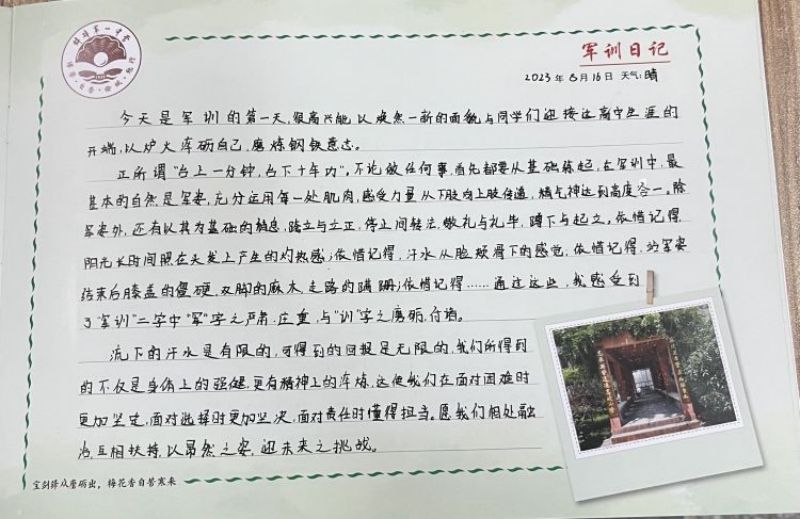 蚌埠第一中学
军训日记
2023年8月16日 天气:晴
今天是军训的第一天,很高兴能以焕然一新的面貌与同学们迎接这高中生涯的
开端,以炉火淬砺自己,磨炼钢铁意志。
正所谓“台上一分钟,台下十年功”。不论做任何事,首先都要从基础练起,在军训中,最
基本的自然是军姿,充分运用每一处肌肉,感受力量从下肢向上肢传递,精气神达到高度合一。除
军姿外,还有以其为基础的稍息,跨立与立正,停止间转法,敬礼与礼毕,蹲下与起立。依惜记得
阳光长时间照在头发上产生的灼热感;依惜记得,汗水从脸颊滑下的感觉,依惜记得,站军姿
结束后膝盖的僵硬,双脚的麻木,走路的蹒跚;依惜记得……通过这些,我感受到
了“军训”二字中“军”字之严肃,庄重,与“训”字之磨砺,付诸。
流下的汗水是有限的,可得到的回报是无限的,我们所得到
的不仅是身体上的强健,更有精神上的淬炼,这使我们在面对困难时
更加坚定,面对选择时更加坚决,面对责任时懂得担当。愿我们相处融
洽,互相扶持,以昂然之姿,迎未来之挑战。
宝剑锋从磨砺出,梅花香自苦寒来